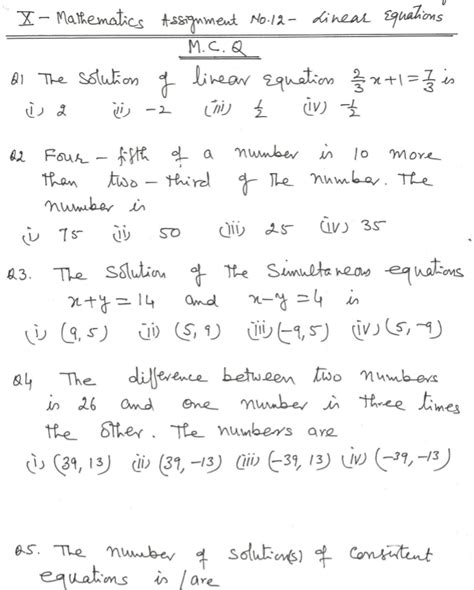 X - Mathematics Assignment No.12 - Linear Equations
M.C.Q
Q1 The Solution of linear equation 2/3 x + 1 = 7/3 is
(i) 2 (ii) -2 (iii) 1/2 (iv) -1/2
Q2 Four-fifth of a number is 10 more
than two-third of the number. The
number is
(i) 75 (ii) 50 (iii) 25 (iv) 35
Q3. The Solution of the Simultaneous equations
x+y=14 and x-y=4 is
(i) (9,5) (ii) (5,9) (iii) (-9,5) (iv) (5,-9)
Q4 The difference between two numbers
is 26 and one number is three times
the other. The numbers are
(i) (39,13) (ii) (39,-13) (iii) (-39,13) (iv) (-39,-13)
Q5. The number of solution(s) of consistent
equations is / are